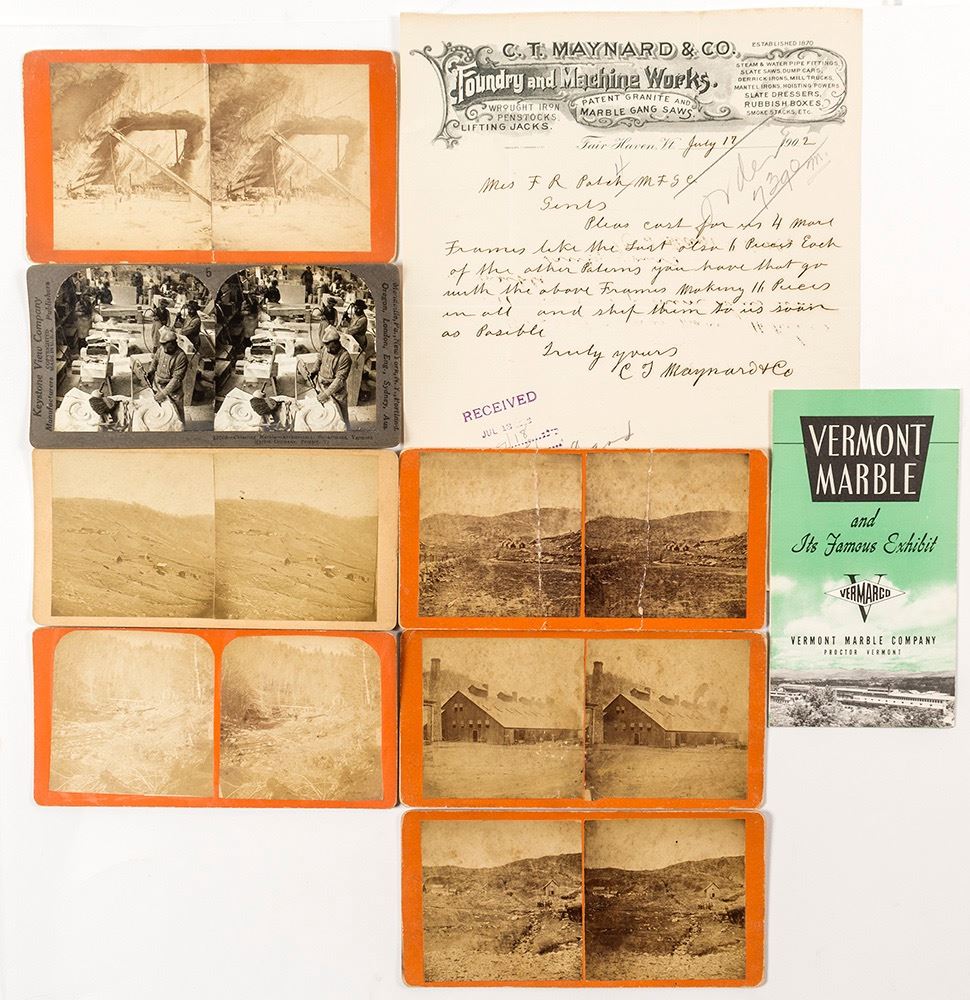 C. T. MAYNARD & CO.
ESTABLISHED 1870
Foundry and Machine Works.
STEAM & WATER PIPE FITTINGS,
SLATE SAWS, DUMP CARS,
DERRICK IRONS, MILL TRUCKS,
MANTEL IRONS, HOISTING POWERS
SLATE DRESSERS,
RUBBISH BOXES,
SMOKE STACKS, ETC.
WROUGHT IRON
PENSTOCKS,
LIFTING JACKS.
PATENT GRANITE AND
MARBLE GANG SAWS.
Fair Haven, Vt. July 17 1902
Mes F R Patch M F G C
Gents
Pleas cast for us 4 more
Frames like the last also 6 Pieces Each
of the other Paterns you have that go
with the above Frames Making 16 Pieces
in all and ship them to us soon
as Posible
Truly yours
C T Maynard & Co
RECEIVED
JUL 18
Keystone View Company
Manufacturers Publishers
COPYRIGHTED
MADE IN U.S.A.
5
Meadville, Pa., New York, N.Y., Portland,
Oregon, London, Eng., Sydney, Aus.
VERMONT
MARBLE
and
Its Famous Exhibit
V
VERMARCO
VERMONT MARBLE COMPANY
PROCTOR VERMONT